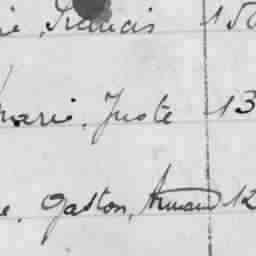 ie, Francis 15
Marie, Juste 13
e, Gaston, Armand 12